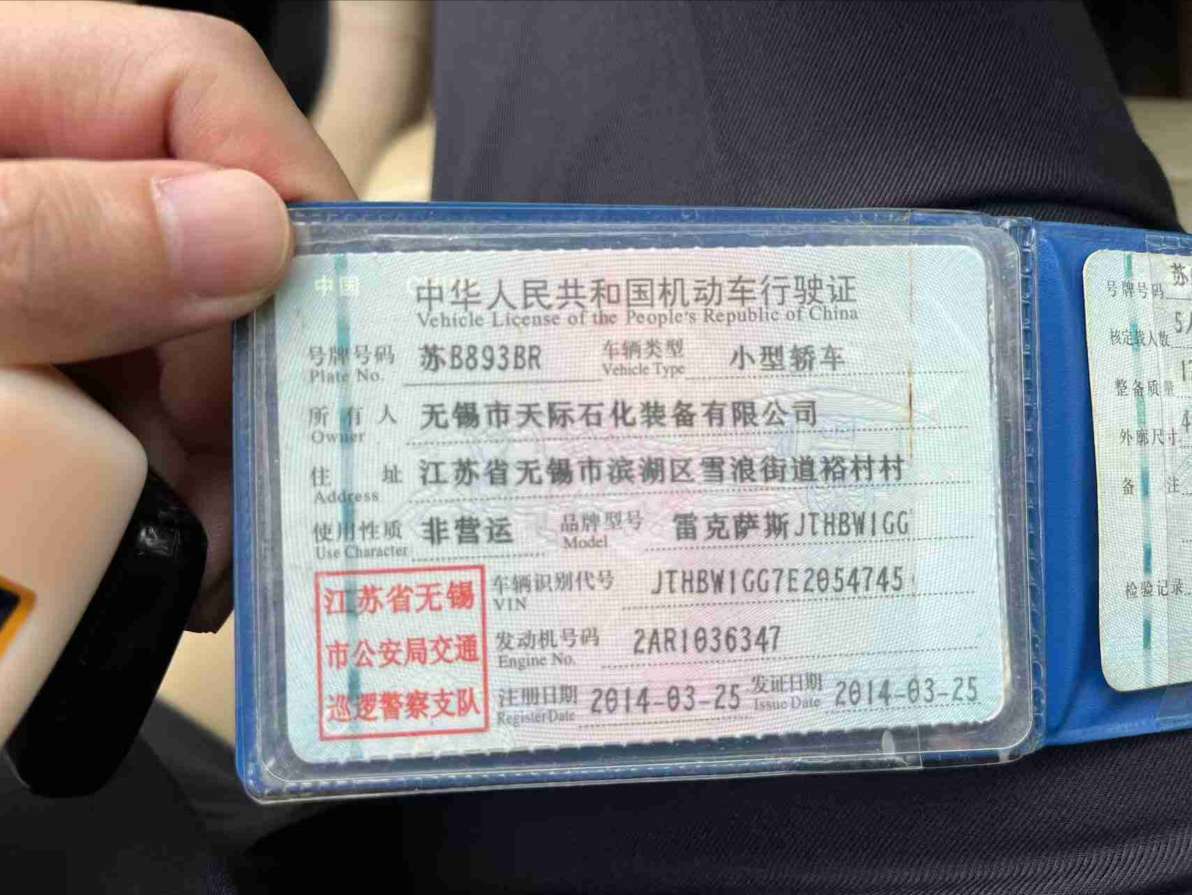 中国
中华人民共和国机动车行驶证
Vehicle License of the People's Republic of China
号牌号码 苏B893BR 车辆类型 小型轿车
Plate No. Vehicle Type
所有人 无锡市天际石化装备有限公司
Owner
住址 江苏省无锡市滨湖区雪浪街道裕村村
Address
使用性质 非营运 品牌型号 雷克萨斯JTHBW1GG
Use Character Model
江苏省无锡
市公安局交通
巡逻警察支队
车辆识别代号 JTHBW1GG7E2054745
VIN
发动机号码 2AR1036347
Engine No.
注册日期 2014-03-25 发证日期 2014-03-25
Register Date Issue Date
号牌号码 苏
核定载人数 5人
整备质量
外廓尺寸 4
备注
检验记录